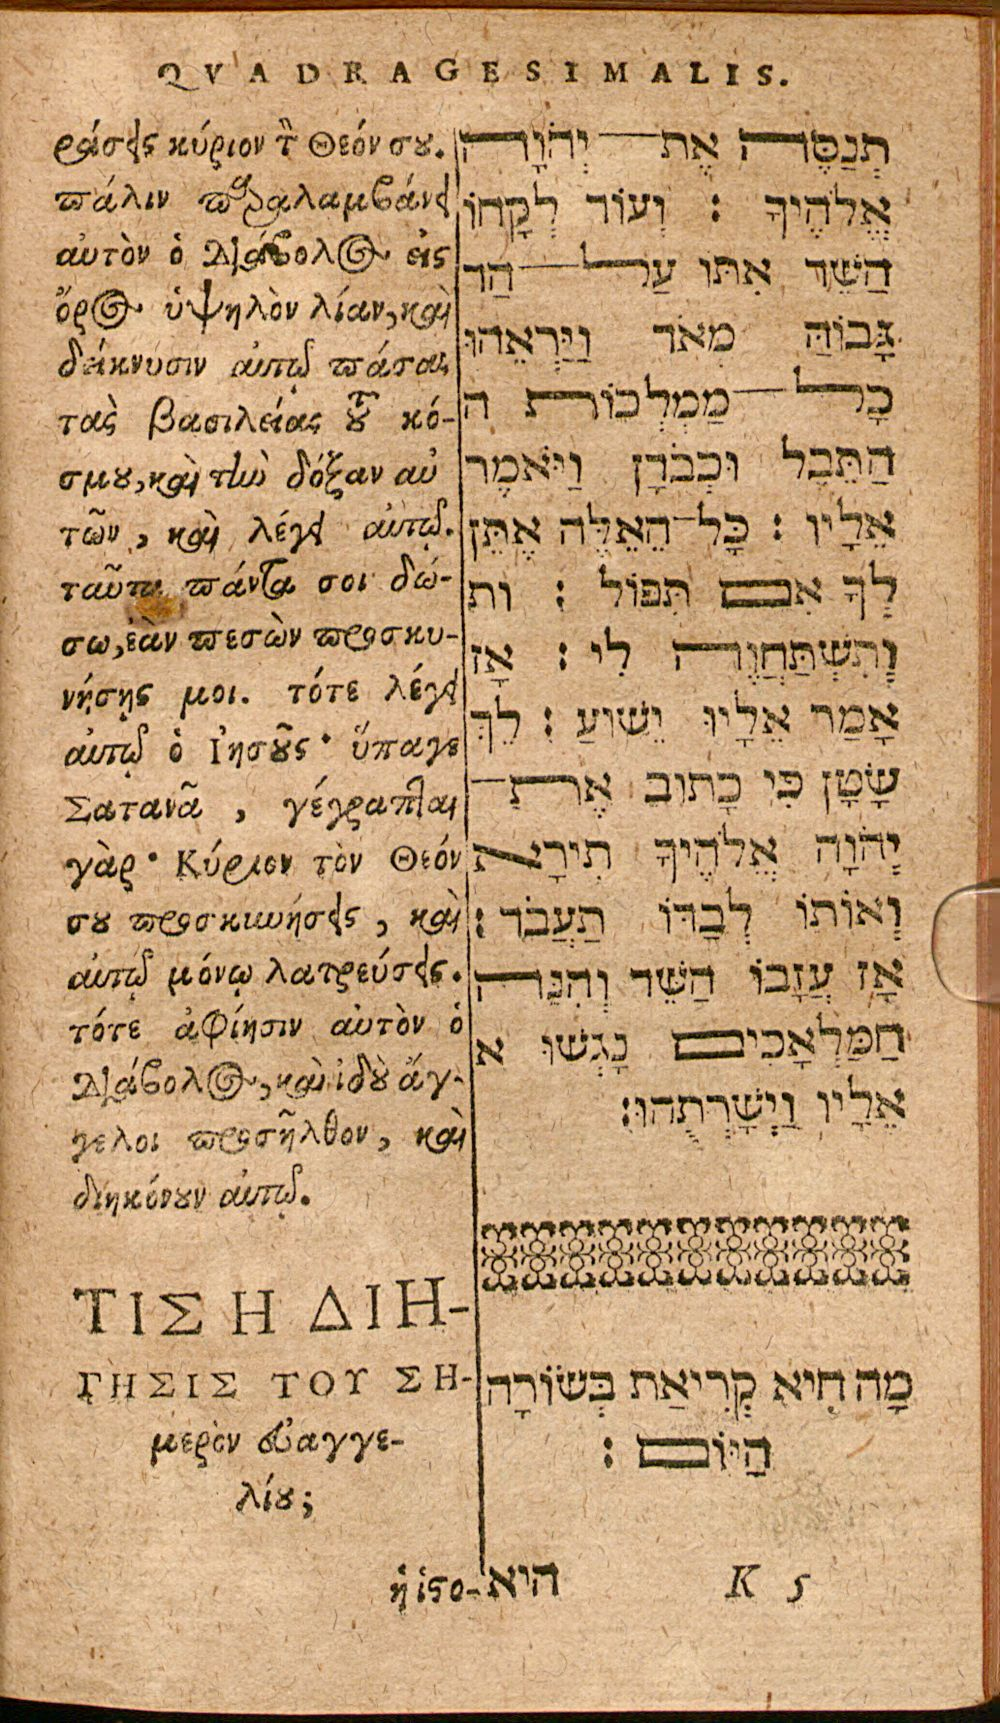 QVADRAGESIMALIS.
ράσεις κύριον τὸν Θεόν σου.
πάλιν παραλαμβάνει
αὐτὸν ὁ Διάβολος εἰς
ὄρος ὑψηλὸν λίαν, καὶ
δείκνυσιν αὐτῷ πάσας
τὰς βασιλείας τοῦ κό-
σμου, καὶ τὴν δόξαν αὐ
τῶν, καὶ λέγει αὐτῷ.
ταῦτα πάντα σοι δώ-
σω, ἐὰν πεσὼν προσκυ-
νήσῃς μοι. τότε λέγει
αὐτῷ ὁ Ἰησοῦς· ὕπαγε
Σατανᾶ, γέγραπται
γὰρ· Κύριον τὸν Θεόν
σου προσκυνήσεις, καὶ
αὐτῷ μόνῳ λατρεύσεις.
τότε ἀφίησιν αὐτὸν ὁ
Διάβολος, καὶ ἰδοὺ ἄγ-
γελοι προσῆλθον, καὶ
διηκόνουν αὐτῷ.
ΤΙΣ Η ΔΙΗ-
ΓΗΣΙΣ ΤΟΥ ΣΗ-
μερὸν εὐαγγε-
λίου;
ἡ ἱστο-
תְנַסֶּה אֶת יְהֹוָה
אֱלֹהֶיךָ : וְעוֹד לְקָחוֹ
הַשֵּׁד אִתּוֹ עַל הַר
גָּבוֹהַּ מְאֹד וַיַּרְאֵהוּ
כָּל מַמְלְכוֹת ה
הַתֵּבֵל וּכְבֹדָן וַיֹּאמֶר
אֵלָיו : כָּל־הָאֵלֶּה אֶתֵּן
לָךְ אִם תִּפּוֹל : ות
וְתִשְׁתַּחֲוֶה לִי : אָז
אָמַר אֵלָיו יֵשׁוּעַ : לֵךְ
שָׂטָן כִּי כָתוּב אֶת
יְהֹוָה אֱלֹהֶיךָ תִירָא
וְאוֹתוֹ לְבַדּוֹ תַעֲבֹד :
אָז עֲזָבוֹ הַשֵּׁד וְהִנֵּה
הַמַּלְאָכִים נָגְשׁוּ א
אֵלָיו וַיְשָׁרְתֻהוּ:
מָה הִיא קְרִיאַת בְּשׂוֹרָה
הַיּוֹם :
היא
K 5